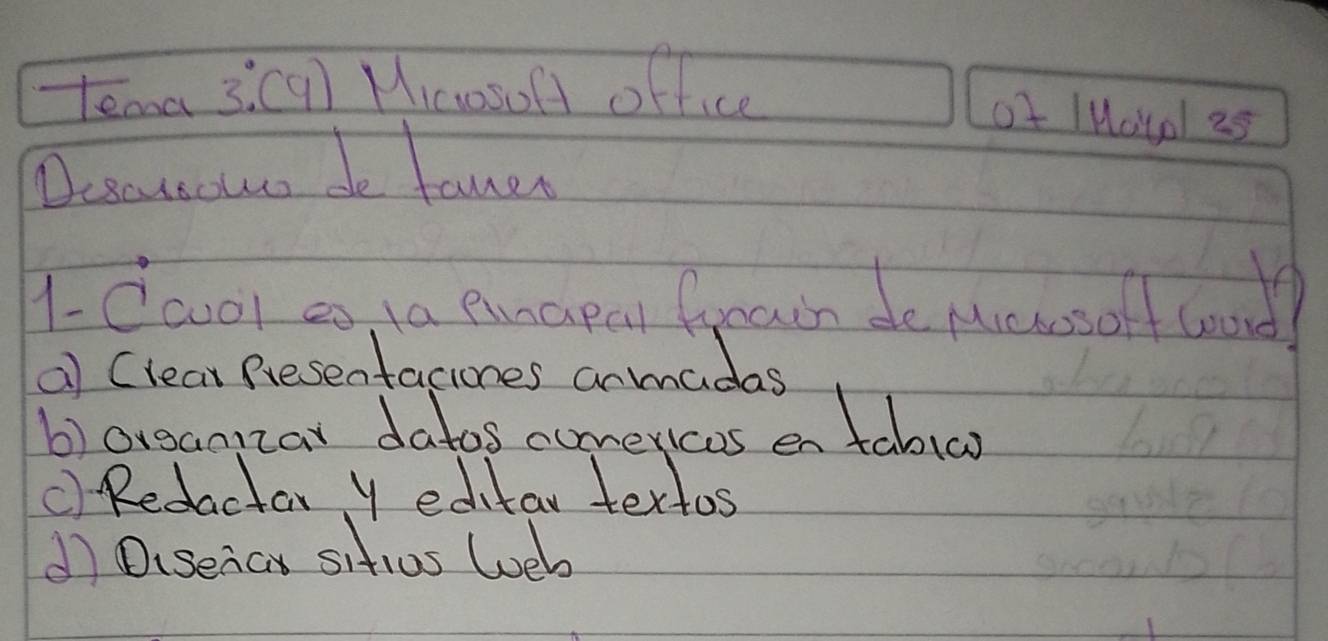 Tema 3.(9) Microsoft office
07 / Mayo / 25
Desarrollo de taller
1- ¿Cual es la Principal función de Microsoft Word?
a) Crear Presentaciones animadas
b) organizar datos numericos en tablas
c) Redactar y editar textos
d) Diseñar sitios Web